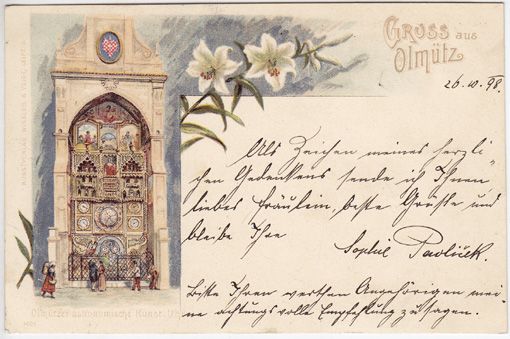 Gruss aus
Olmütz.
26.10.98.
Als Zeichen meines herzli-
chen Gedenkens sende ich Ihnen
liebes Fräulein, beste Grüsse und
bleibe Ihre
Sophie
Bitte Ihren werthen Angehörigen mei-
ne achtungsvolle Empfehlung zu sagen.
Olmützer astronomische Kunst-Uhr